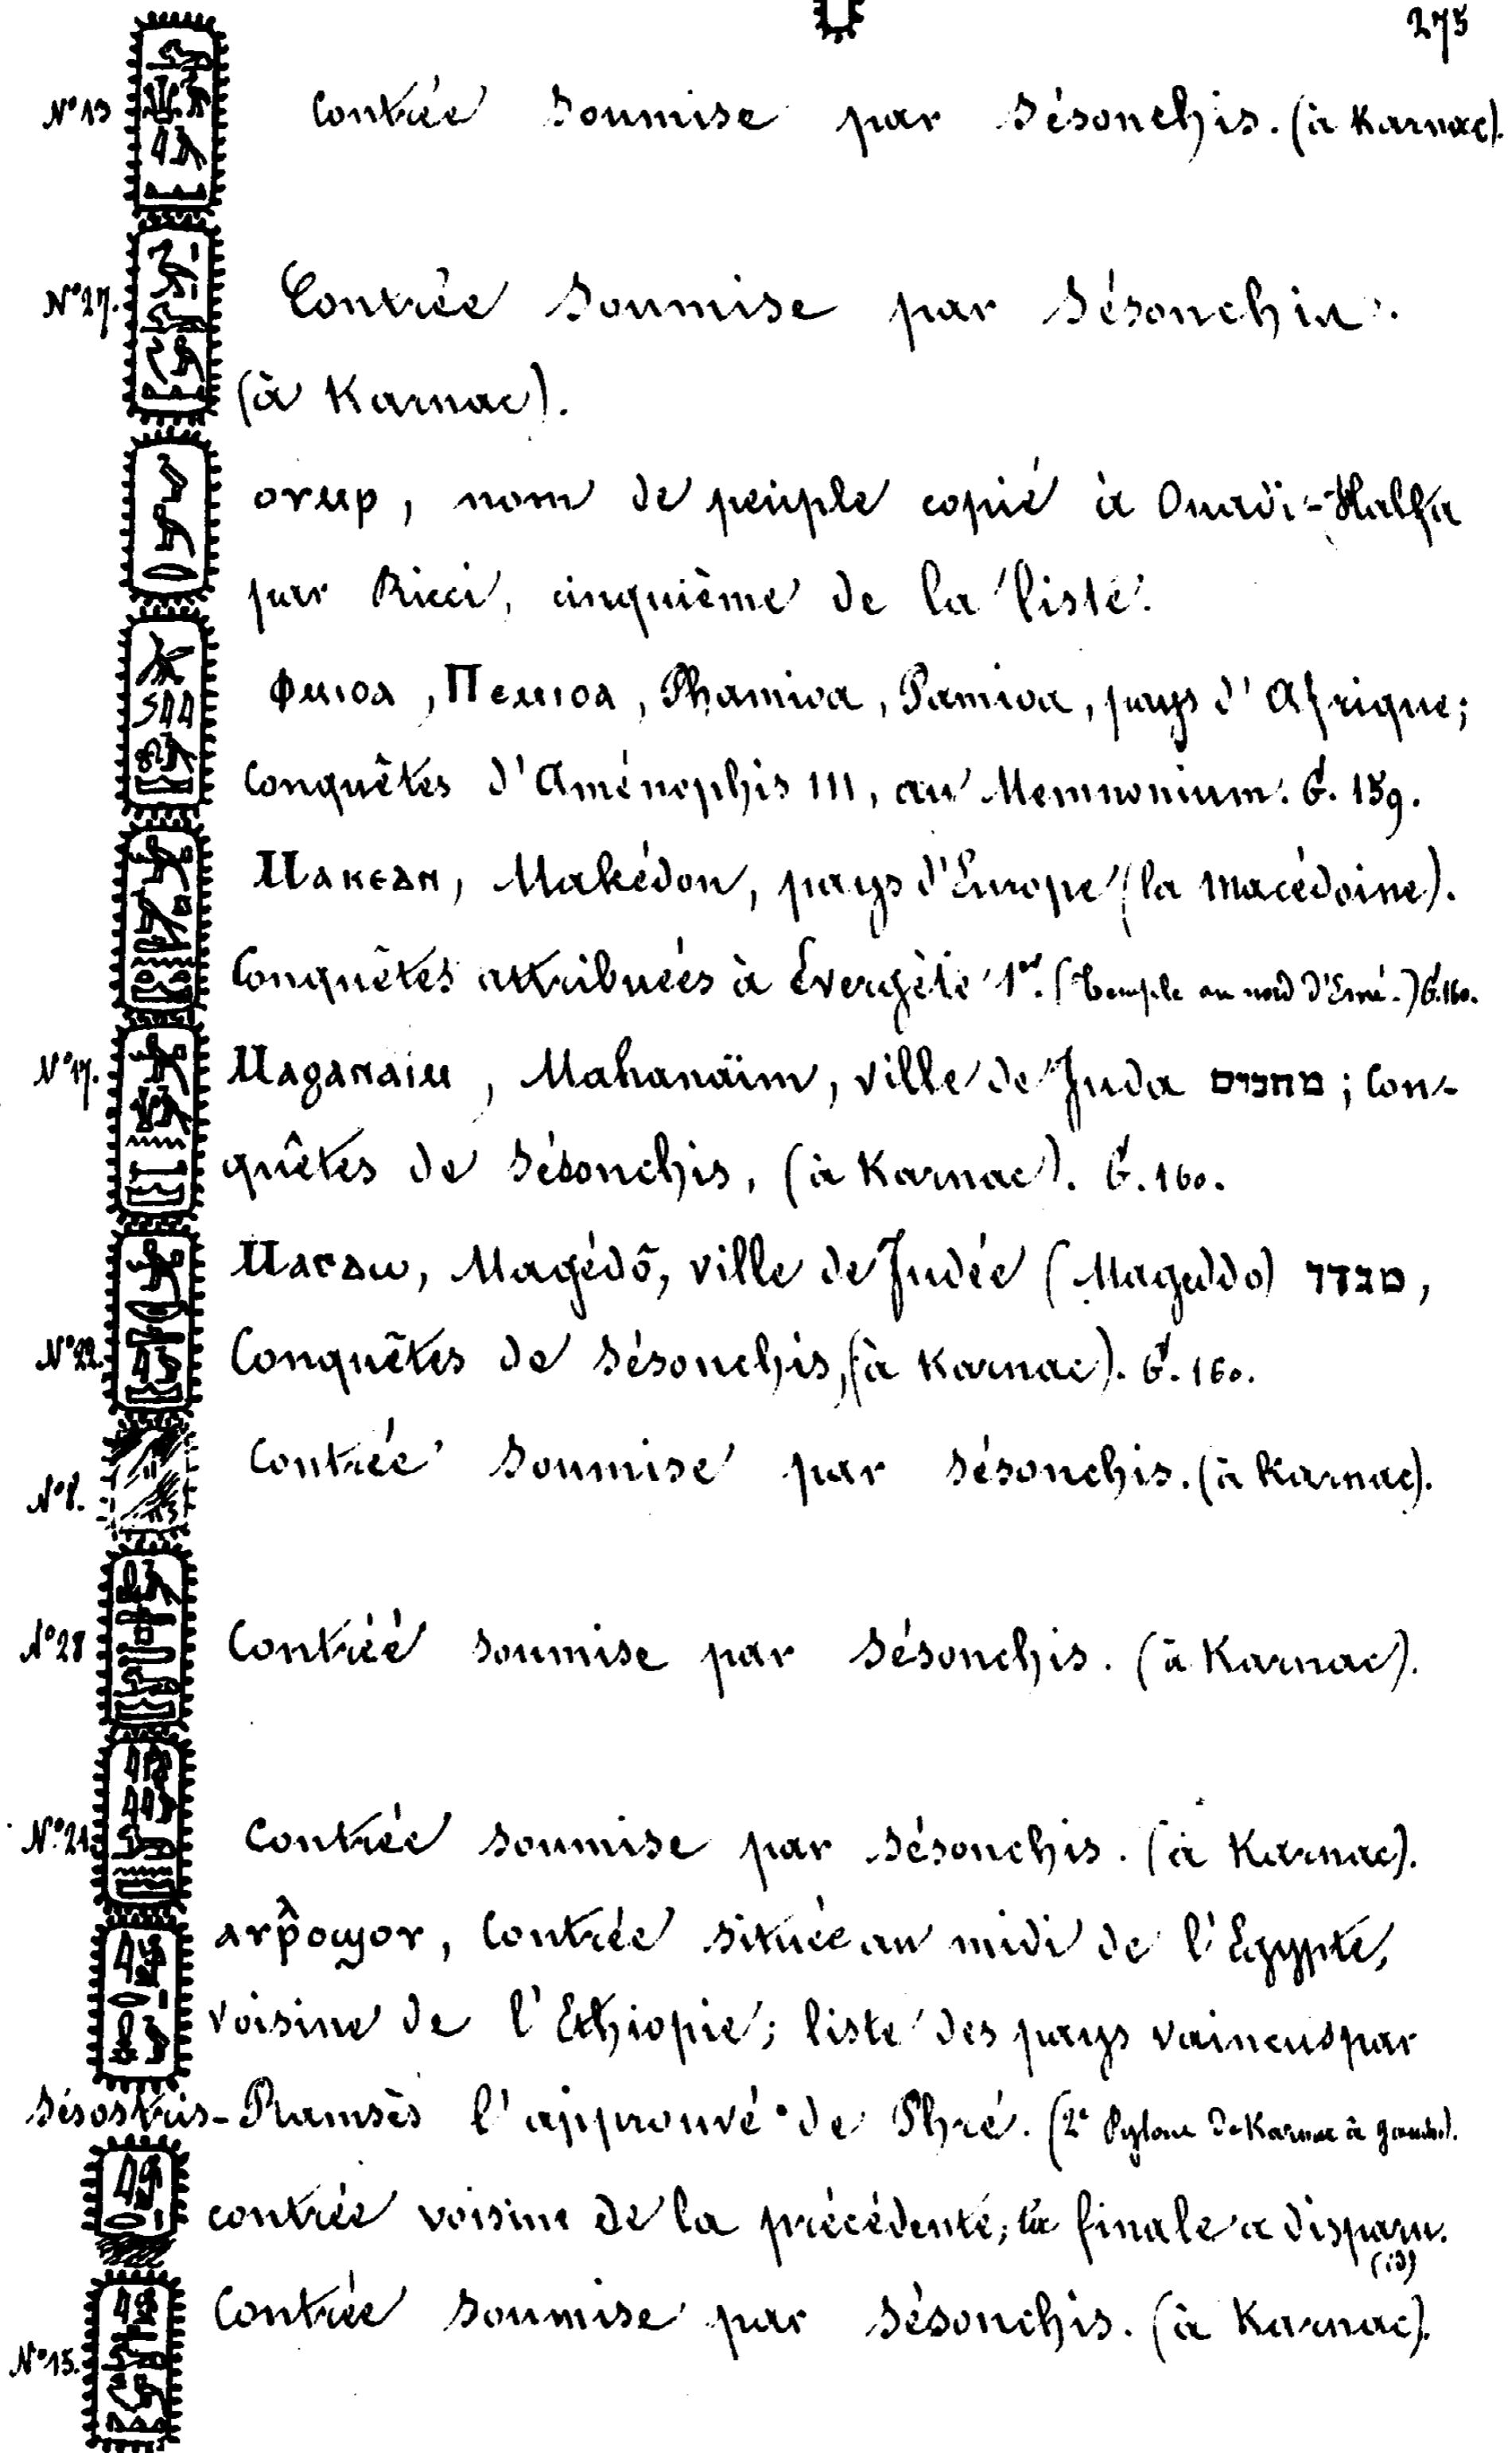 275
N° 13 Contrée soumise par Sésonchis. (à Karnac).
N° 27. Contrée soumise par Sésonchis.
(à Karnac).
ⲟⲩⲙⲣ, nom de peuple copié à Ouadi-Halfa
par Ricci, cinquième de la liste.
Ⲫⲙⲓⲟⲁ, Ⲡⲉⲙⲓⲟⲁ, Phamioa, Pamioa, pays d'Afrique;
Conquêtes d'Aménophis III, au Memnonium. G. 159.
Ⲙⲁⲕⲉⲇⲛ, Makédon, pays d'Europe (la Macédoine).
Conquêtes attribuées à Évergète 1er. (Temple au nord d'Esné.) G. 160.
N° 17. Ⲙⲁϩⲁⲛⲁⲓⲙ, Mahanaïm, ville de Juda מחנים; Con-
quêtes de Sésonchis, (à Karnac). G. 160.
Ⲙⲁⲅⲇⲱ, Magédô, ville de Judée (Mageddo) מגדו,
N° 22. Conquêtes de Sésonchis, (à Karnac). G. 160.
N° 8. Contrée soumise par Sésonchis. (à Karnac).
N° 28 Contrée soumise par Sésonchis. (à Karnac).
N° 21. Contrée soumise par Sésonchis. (à Karnac).
Contrée située au midi de l'Egypte,
voisine de l'Ethiopie; liste des pays vaincus par
Sésostris-Ramsès l'approuvé de Phré. (2e Pylone de Karnac à gauche).
contrée voisine de la précédente; la finale a disparu.
N° 15. Contrée soumise par Sésonchis. (à Karnac).